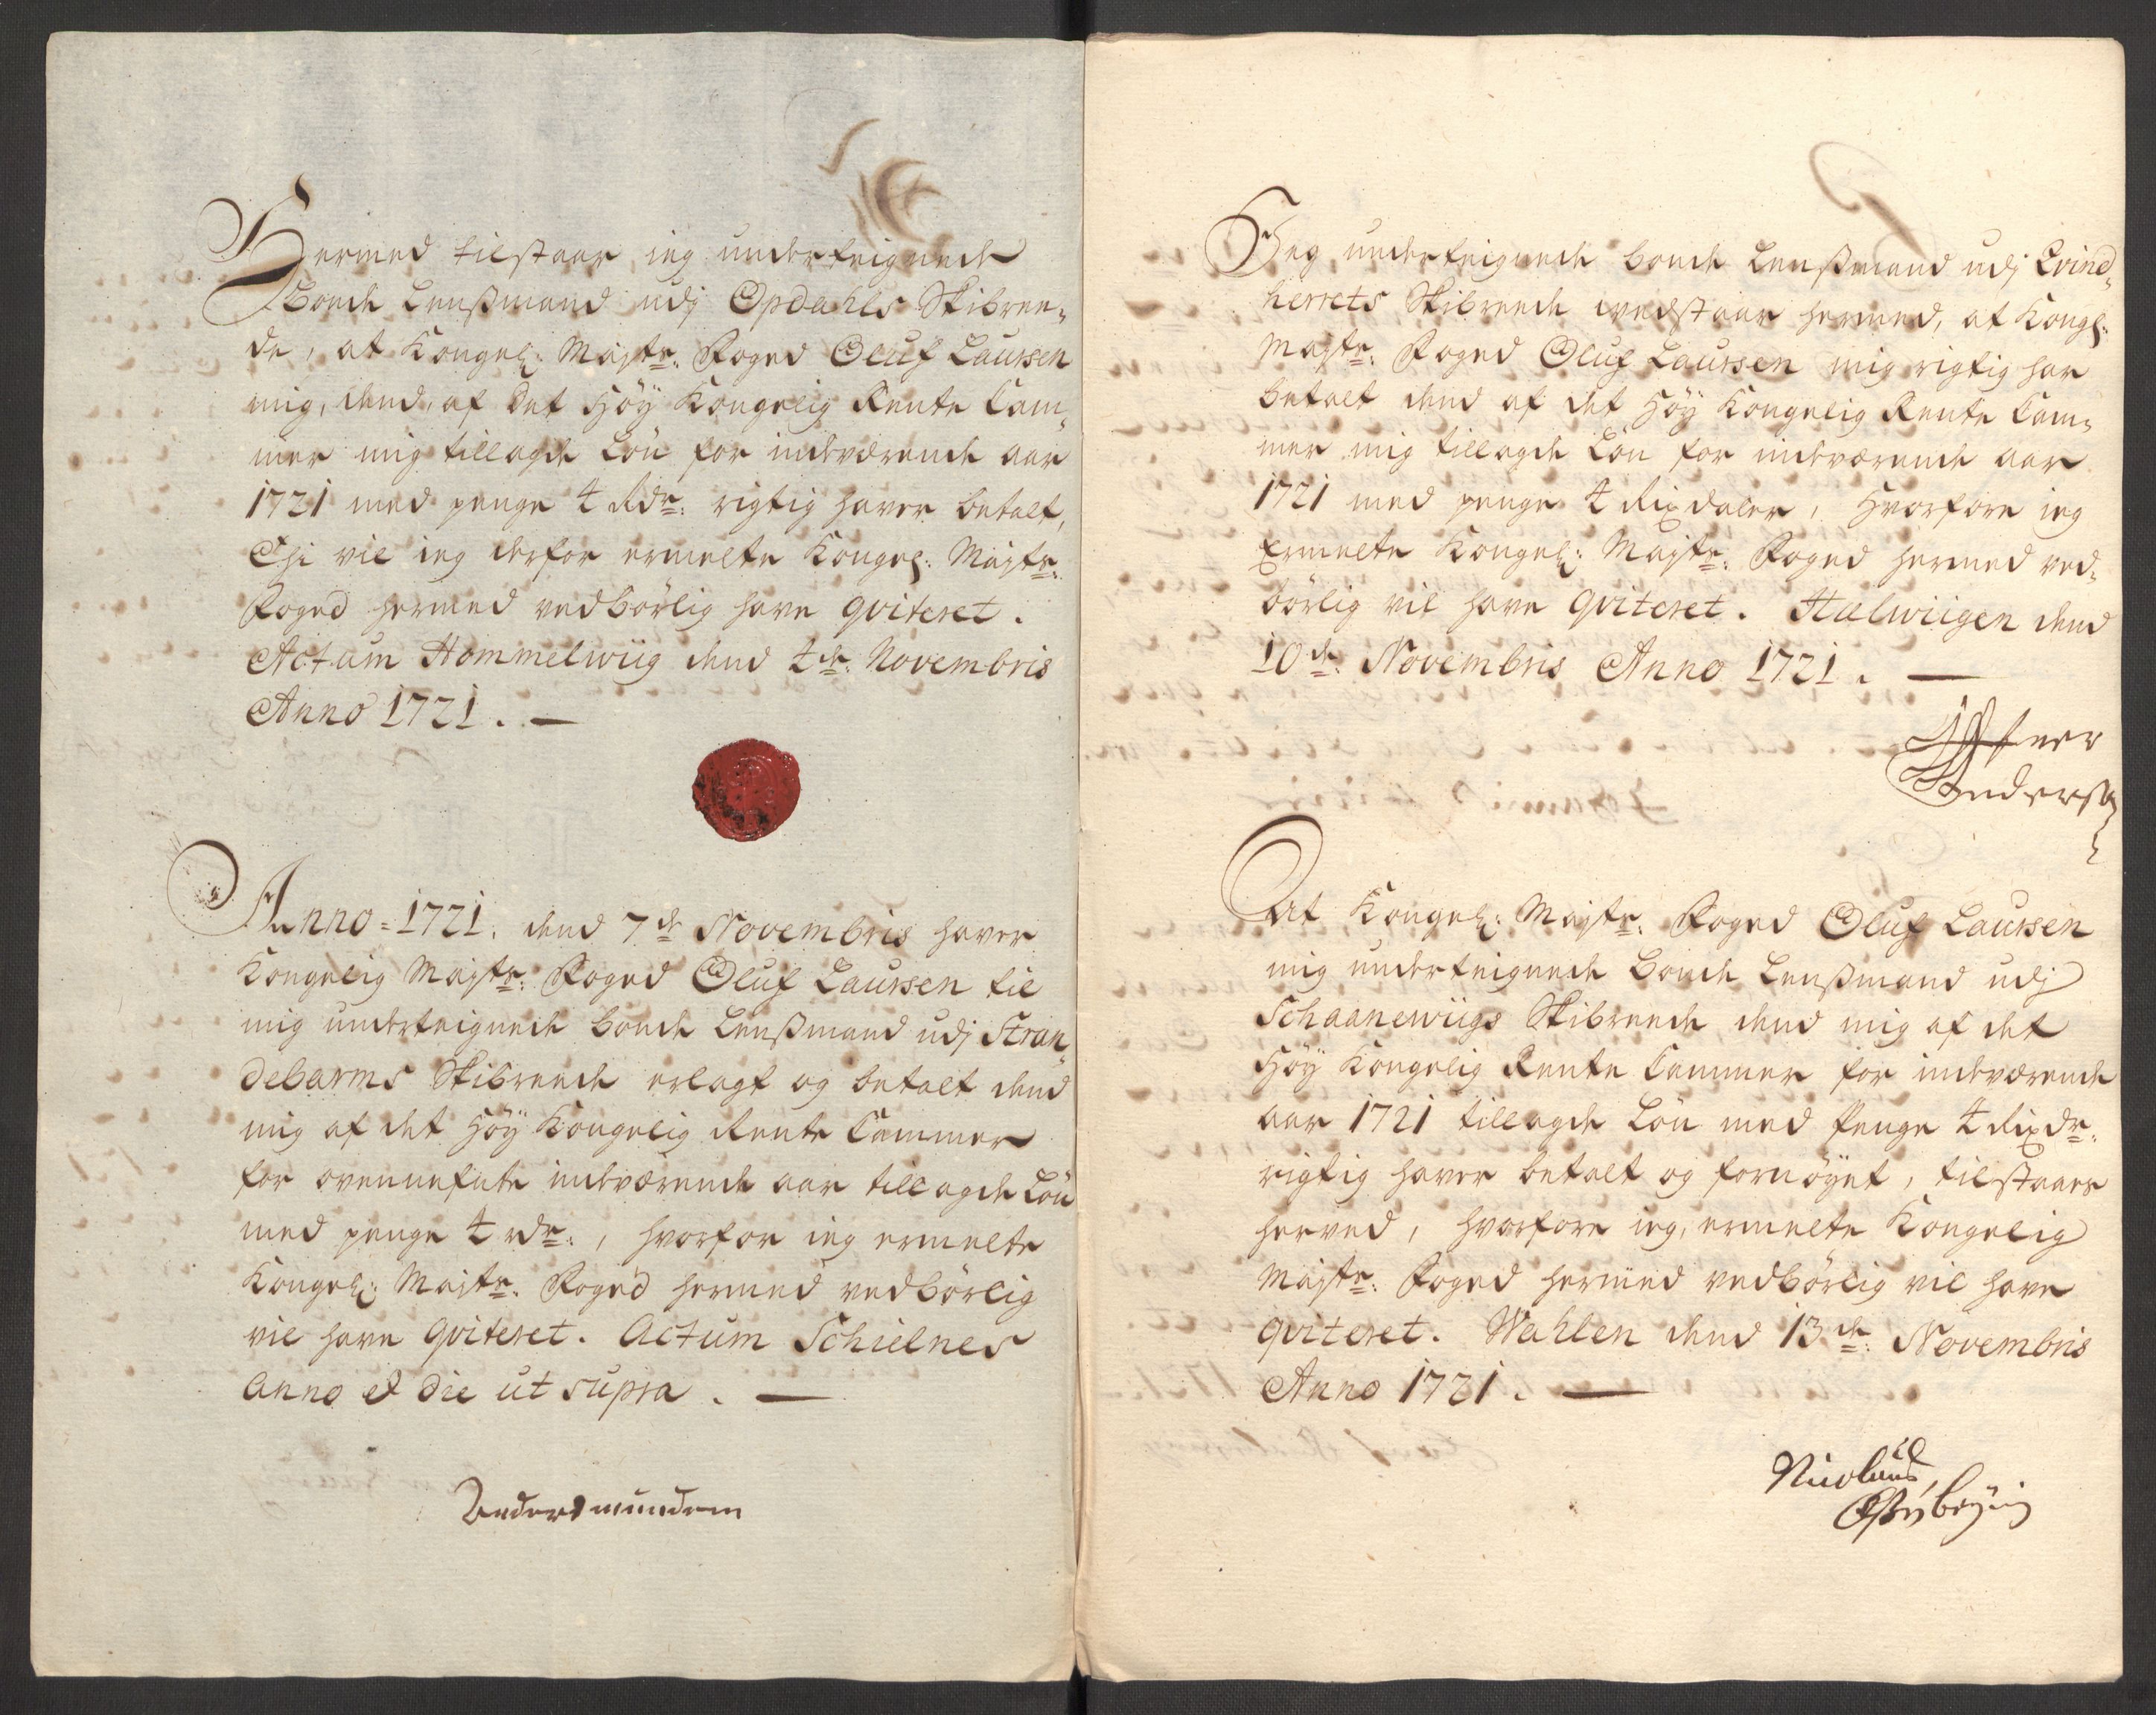 Hermed tilstaar ieg underteignede
Bonde Lensßmand udj Opdahls Skibree,,
de, at Kongel: Maÿtz: Foged Oluf Laursen
mig, dend, af det Höÿ Kongelig Rente Cam,,
mer mig tillagde Lön for indeværende aar
1721 med penge 4 Rdr: rigtig haver betalt,
Thi vil ieg derfor ermelte Kongel: Maÿts:
Foged hermed vedbörlig have qviteret.
Actum Hommelwiig dend 4de: Novembris
Anno 1721. —
Anno = 1721. dend 7de Novembris haver
Kongelig Mayts: Foged Oluf Laursen til
mig underteignede bonde Lensßmand udj Stran,,
debarms Skibreede erlagt og betalt dend
mig af det Höÿ Kongelig Rente Cammer
for ovennefnte indeværende aar tillagde Lön
med penge 4 rdr:, hvorfor ieg ermelte
Kongel: Mayts: Foged hermed vedbörlig
vil have qviteret. Actum Schielnes
anno et die ut supra. —
Anders mundem
Jeg underteignede bonde Lensßmand udj Qvind,,
herrets Skibreede vedstaar hermed, at Kongl:
Mayts: Foged Oluf Laursen mig rigtig har
betalt dend af det Höÿ Kongelig Rente Cam,,
mer mig tillagde Lön for indeværende aar
1721 med penge 4 Rixdaler, hvorfore ieg
Ermelte Kongel: Mayts: Foged hermed ved,,
börlig vil have qviteret. Hælwiigen dend
10de: Novembris Anno 1721. —
Anders
At Kongel: Mayts: Foged Oluf Laursen
mig underteignede Bonde Lensßmand udj
Schaanewiigs Skibreede dend mig af det
Höÿ Kongelig Rente Cammer for indeværende
aar 1721 tillagde Lön med Penge 4 Rixdr:
rigtig haver betalt og fornöyet, tilstaars
herved, hvorfore ieg, ermelte Kongelig
Mayts: Foged hermed vedbörlig vil have
qviteret. Wahlen dend 13de: Novembris
Anno 1721. —
Nicolaus